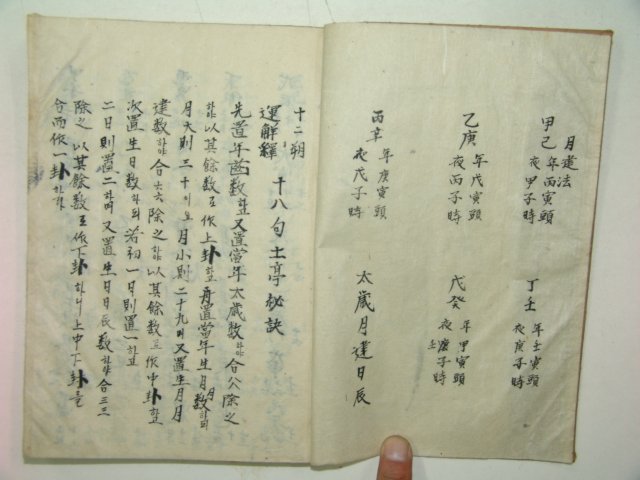 月建法
甲己 年丙寅頭 夜甲子時
丁壬 年壬寅頭 夜庚子時
乙庚 年戊寅頭 夜丙子時
戊癸 年甲寅頭 夜壬子時
丙辛 年庚寅頭 夜戊子時
太歲月建日辰
十二朔
運解釋 十八句土亭秘訣
先置年齒數하고 又置當年太歲數하야 合八除之
하야 以其餘數로 作上卦하고 再置當年生月數하되
月大則三十이오 月小則二十九며 又置生月月
建數하야 合六除之하야 以其餘數로 作中卦하고
次置生日數하되 若初一日則置一하고
二日則置二하며 又置生日日辰數하야 合三三
除之 以其餘數로 作下卦하니 上中下卦을
合而作一卦하라